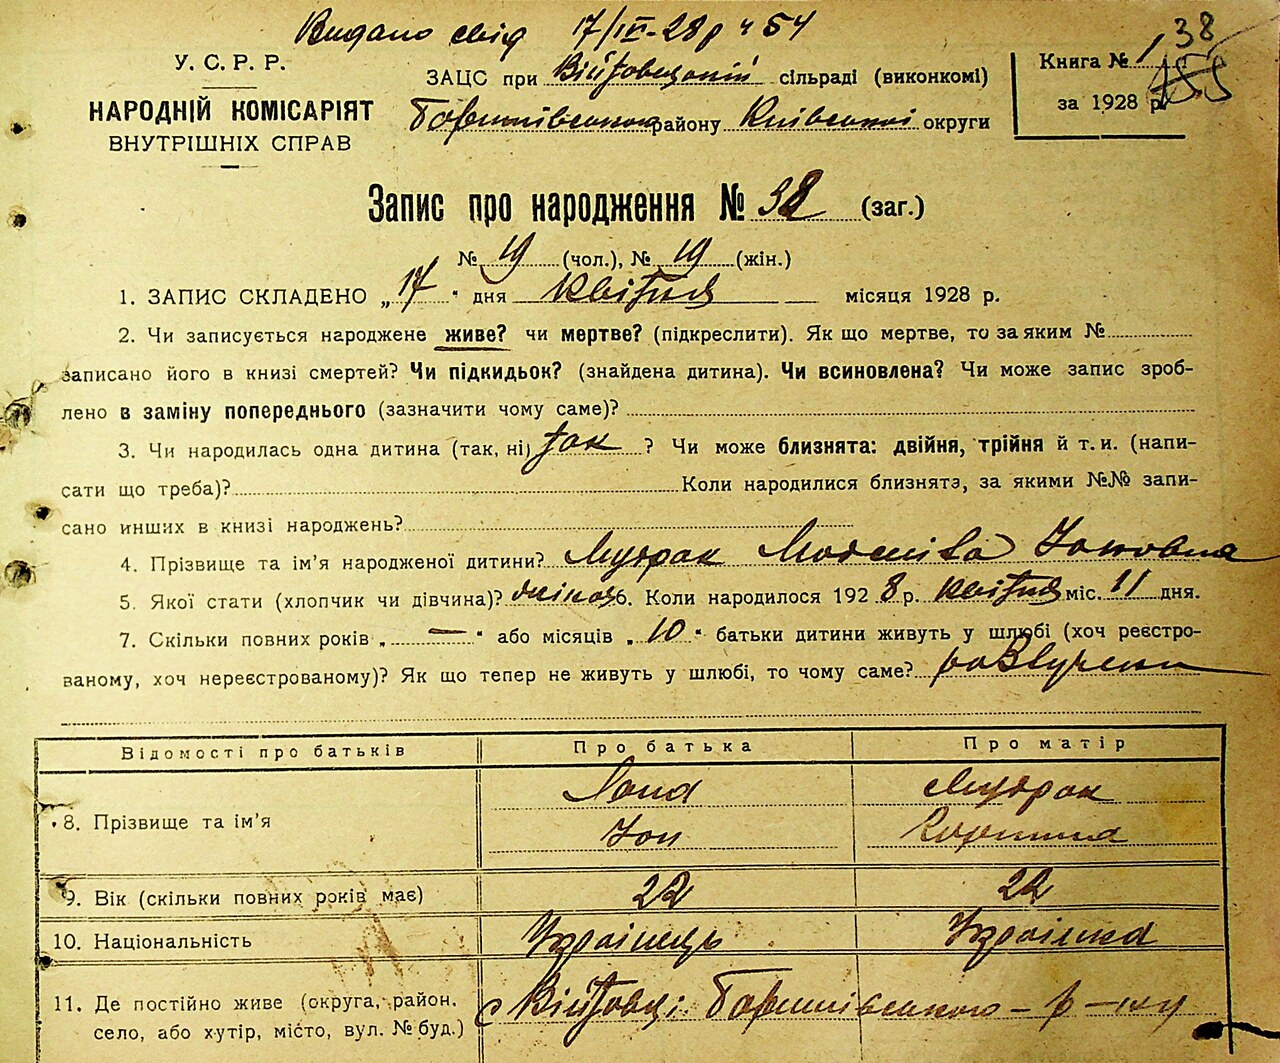 Видано свід 17/IV-28р ч 54
У. С. Р. Р.
НАРОДНІЙ КОМІСАРІЯТ
ВНУТРІШНІХ СПРАВ
ЗАЦС при Війтовецькій сільраді (виконкомі)
району Київської округи
Книга № 1
за 1928 р.
38
155
Запис про народження № 38 (заг.)
№ 19 (чол.), № 19 (жін.)
1. ЗАПИС СКЛАДЕНО „17" дня Квітня місяця 1928 р.
2. Чи записується народжене живе? чи мертве? (підкреслити). Як що мертве, то за яким №
записано його в книзі смертей? Чи підкидьок? (знайдена дитина). Чи всиновлена? Чи може запис зроб-
лено в заміну попереднього (зазначити чому саме)?
3. Чи народилась одна дитина (так, ні) так ? Чи може близнята: двійня, трійня й т. и. (напи-
сати що треба)? Коли народилися близнята, за якими №№ запи-
сано инших в книзі народжень?
4. Прізвище та ім'я народженої дитини?
5. Якої стати (хлопчик чи дівчина)? 6. Коли народилося 1928 р. Квітня міс. 11 дня.
7. Скільки повних років „—" або місяців „10" батьки дитини живуть у шлюбі (хоч реєстро-
ваному, хоч нереєстрованому)? Як що тепер не живуть у шлюбі, то чому саме?
Відомості про батьків Про батька Про матір
8. Прізвище та ім'я
9. Вік (скільки повних років має) 22 22
10. Національність Українець Українка
11. Де постійно живе (округа, район, село, або хутір, місто, вул. № буд.) с Війтовці